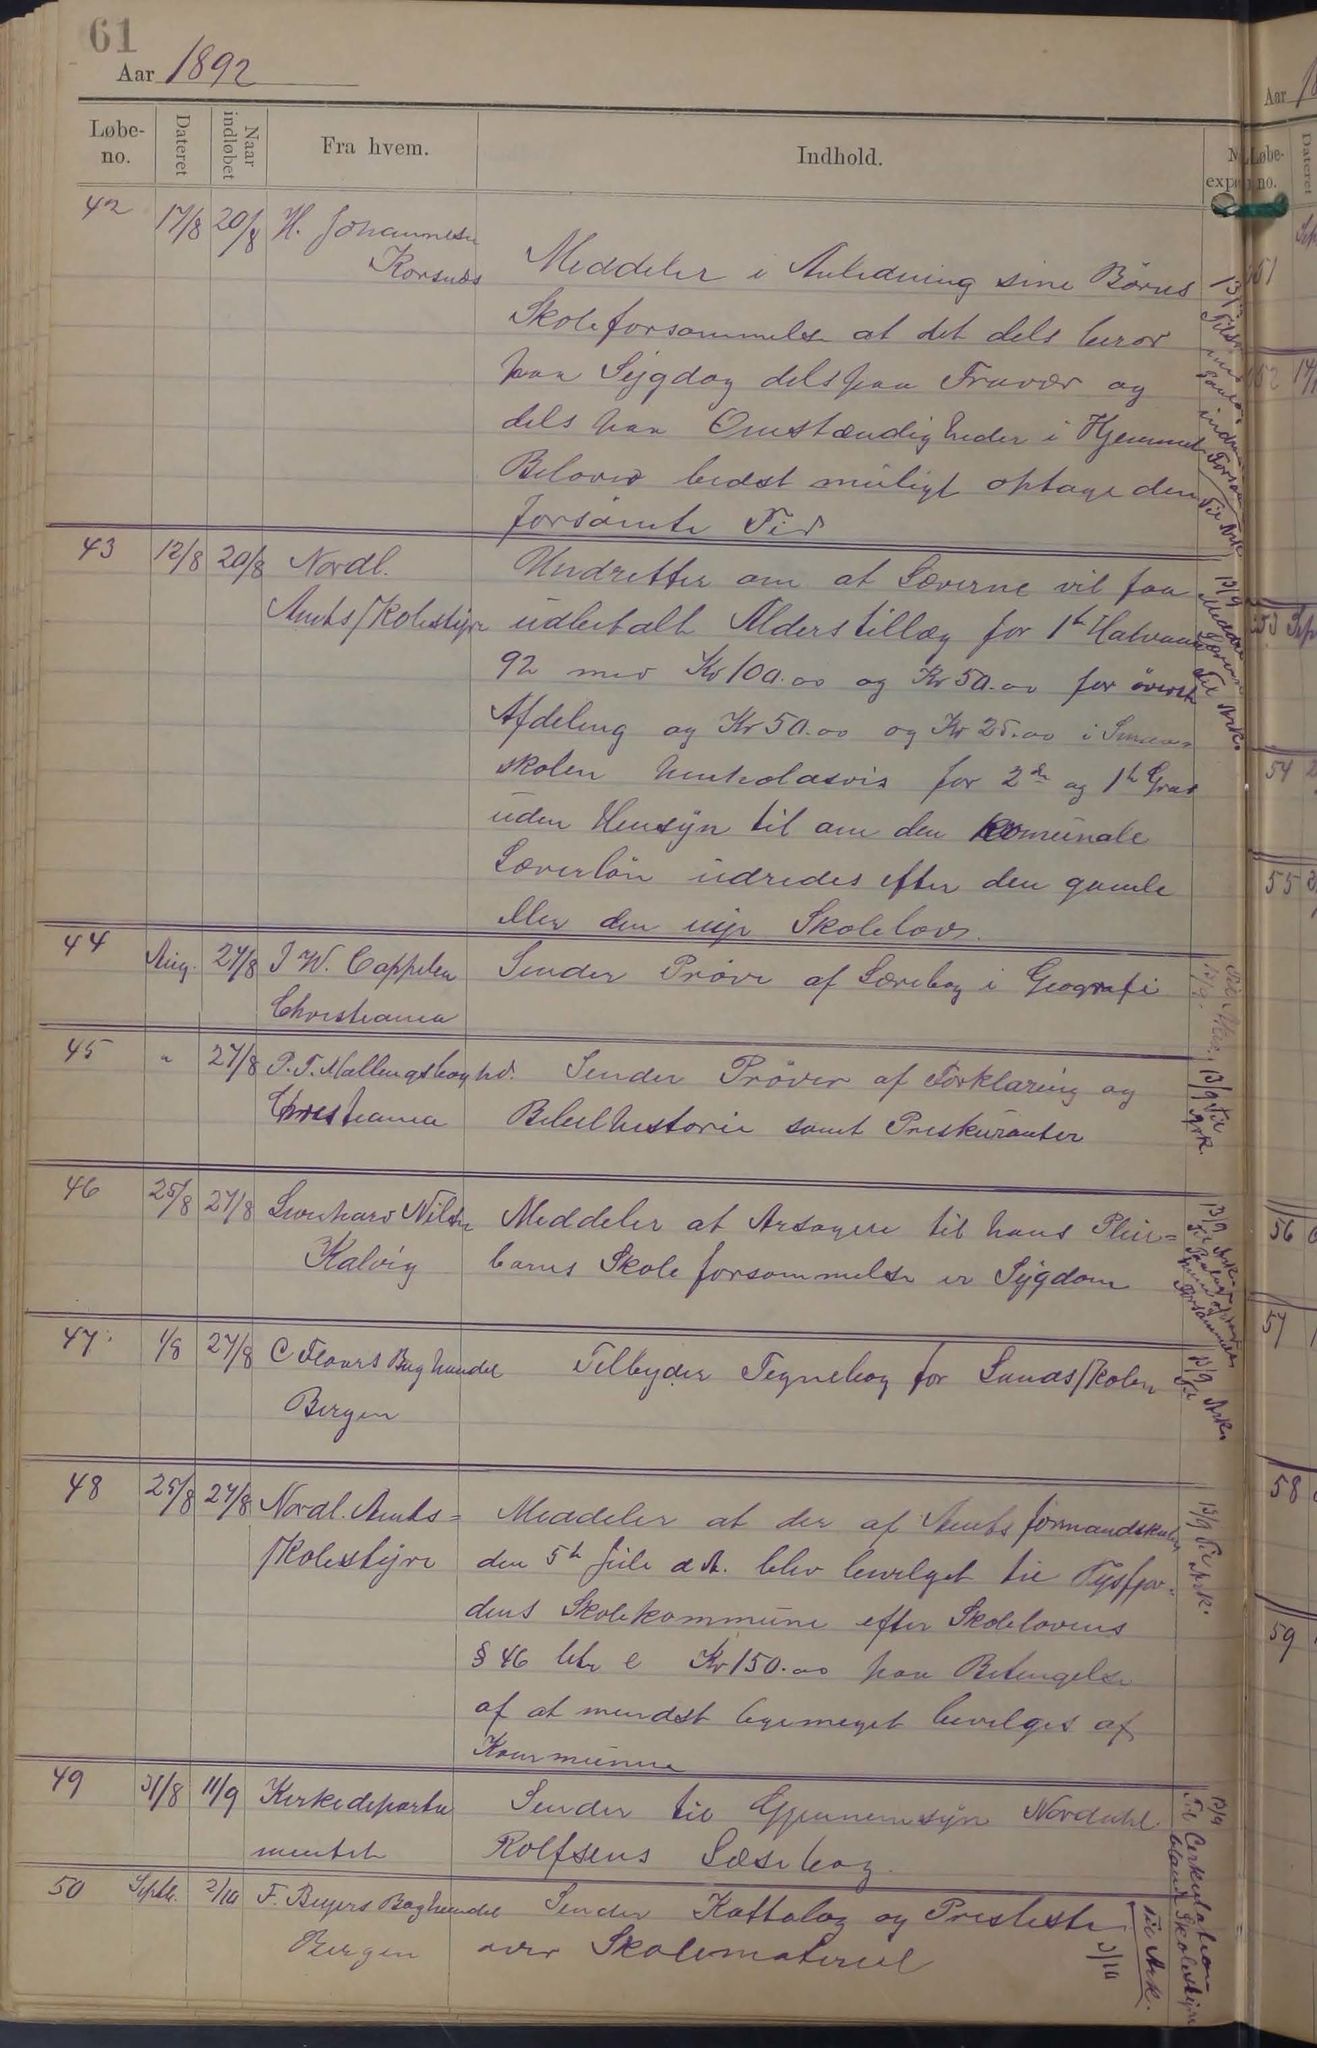 61
Aar 1892
Løbe-no.
Dateret
Naar indløbet
Fra hvem.
Indhold.
42 17/8 20/8 H. Johannesen
Korsnæs
Meddeler i Anledning sine Børns
Skoleforsømmelse at det dels beror
paa Sygdog dels paa Fravær og
dels paa Omstændigheder i Hjemmet
Belover bedst muligt optage den
forsømte Tid
43 12/8 20/8 Nordl.
Amts/kolestyre
Undretter om at Lærerne vil faa
udbetalt Alderstillæg for 1ste Halvaar
92 med Kr 100.00 og Kr 50.00 for øverste
Afdeling og Kr 50.00 og Kr 25.00 i Smaa-
skolen henholdsvis for 2den og 1ste Grad
uden Hensyn til om den komunale
Lærerløn udredes efter den gamle
eller den nye Skolelov.
44 Aug. 27/8 J W. Cappelen
Christiania
Sender Prøve af Lærebog i Geografi
45 " 27/8 P. T. Mallings boghd.
Christiania
Sender Prøver af Forklaring og
Bibelhistorie samt Priskuranter
13/9 Til Ark.
46 25/8 27/8 Leonhard Nilsen
Kalvig
Meddeler at Arsagen til hans Plie-
barns Skoleforsømmelse er Sygdom
47 1/8 27/8 C Floors Boghandel
Bergen
Tilbyder Tegnebog for Landsskolen
13/9 Til Ark.
48 25/8 27/8 Nordl. Amts-
skolestyre
Meddeler at der af Amtsformandskabet
den 5te Juli d A. blev bevilget til Tysfjor-
dens Skolekommune efter Skolelovens
§ 46 litr e Kr 150.00 paa Betingelse
af at mindst ligemeget bevilges af
Kommunen
13/9 Til Ark.
49 31/8 11/9 Kirkedeparte
mentet
Sender til Gjennemsyn Nordahl
Rolfsens Læsebog.
13/9 Til Cirkulation blandt Skolestyre
50 Septb. 2/10 F. Beyers Boghandel
Bergen
Sender Kattalog og Prisliste
over Skolemateriel
3/10 Til Ark.
Aar
Løbe-no.
Dateret
51
52
53
54
55
56
57
58
59